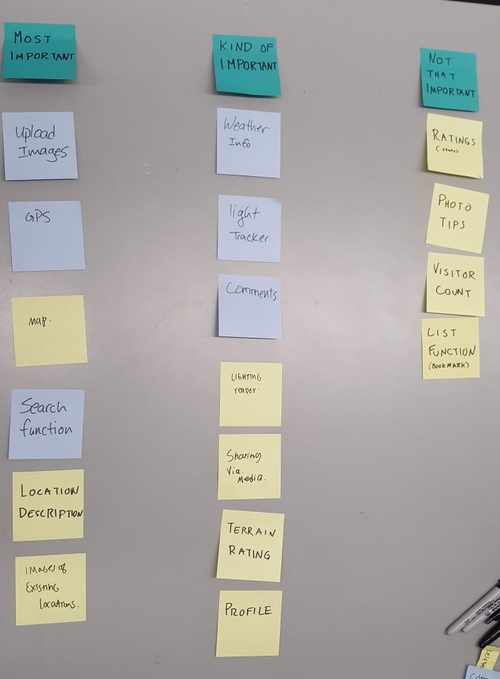 MOST
IMPORTANT
Upload
Images
GPS
Map.
Search
function
LOCATION
DESCRIPTION
Images of
Existing
Locations.
KIND OF
IMPORTANT
Weather
Info
light
Tracker
Comments
Lighting
render.
Sharing
Via
Media.
TERRAIN
RATING
PROFILE
NOT
THAT
IMPORTANT
RATINGS
PHOTO
TIPS
VISITOR
COUNT
LIST
FUNCTION
(BOOKMARK)